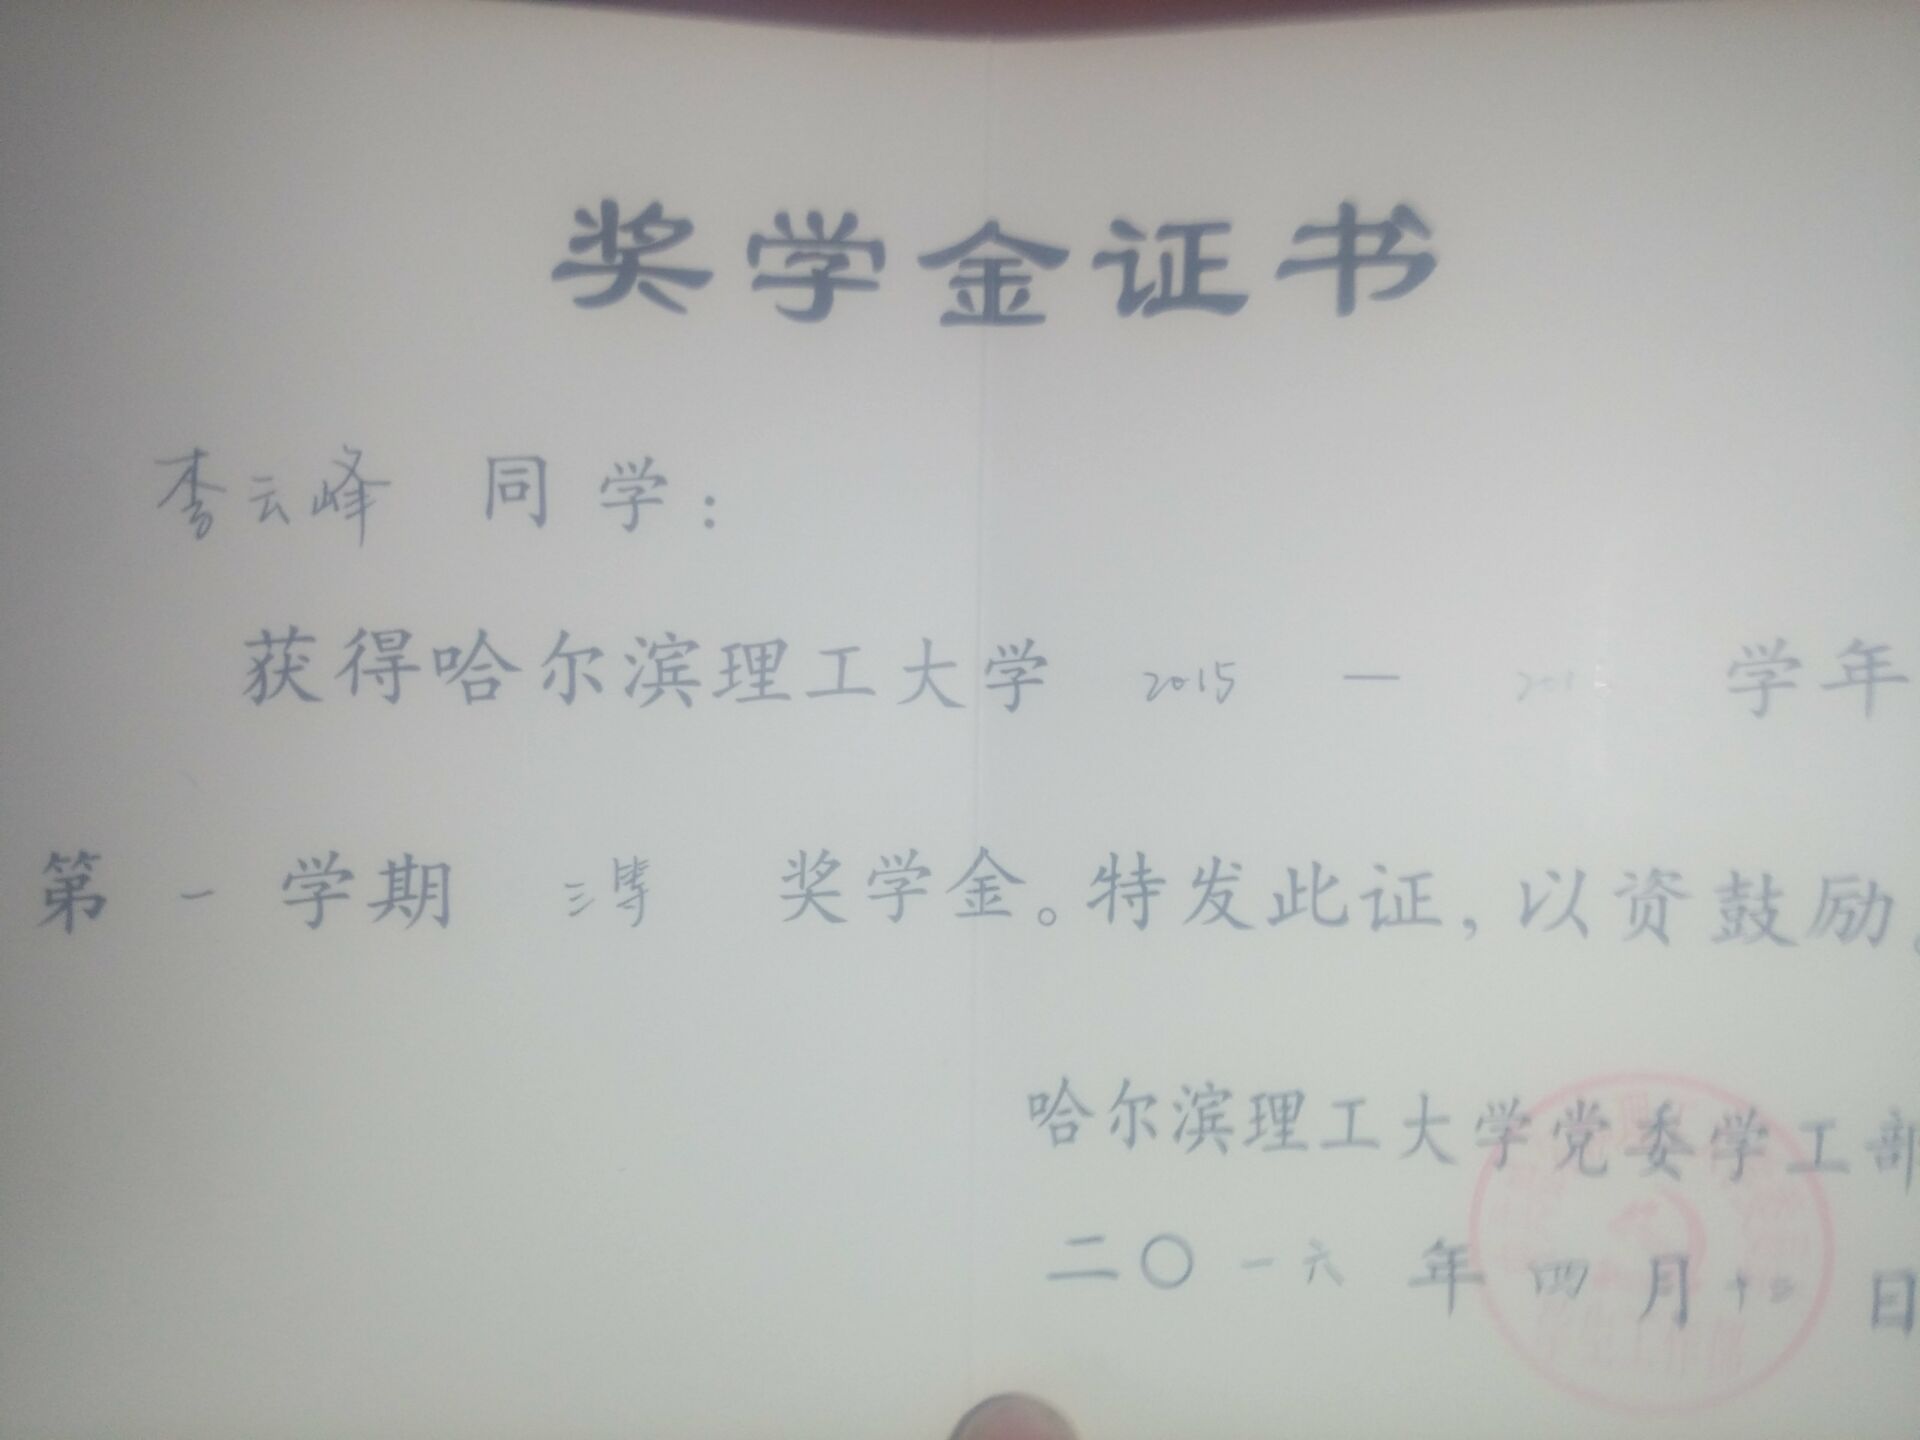 奖学金证书
李云峰 同学：
获得哈尔滨理工大学 2015 — 学年
第一学期 三等 奖学金。特发此证，以资鼓励。
哈尔滨理工大学党委学工部
二〇一六年四月十二日